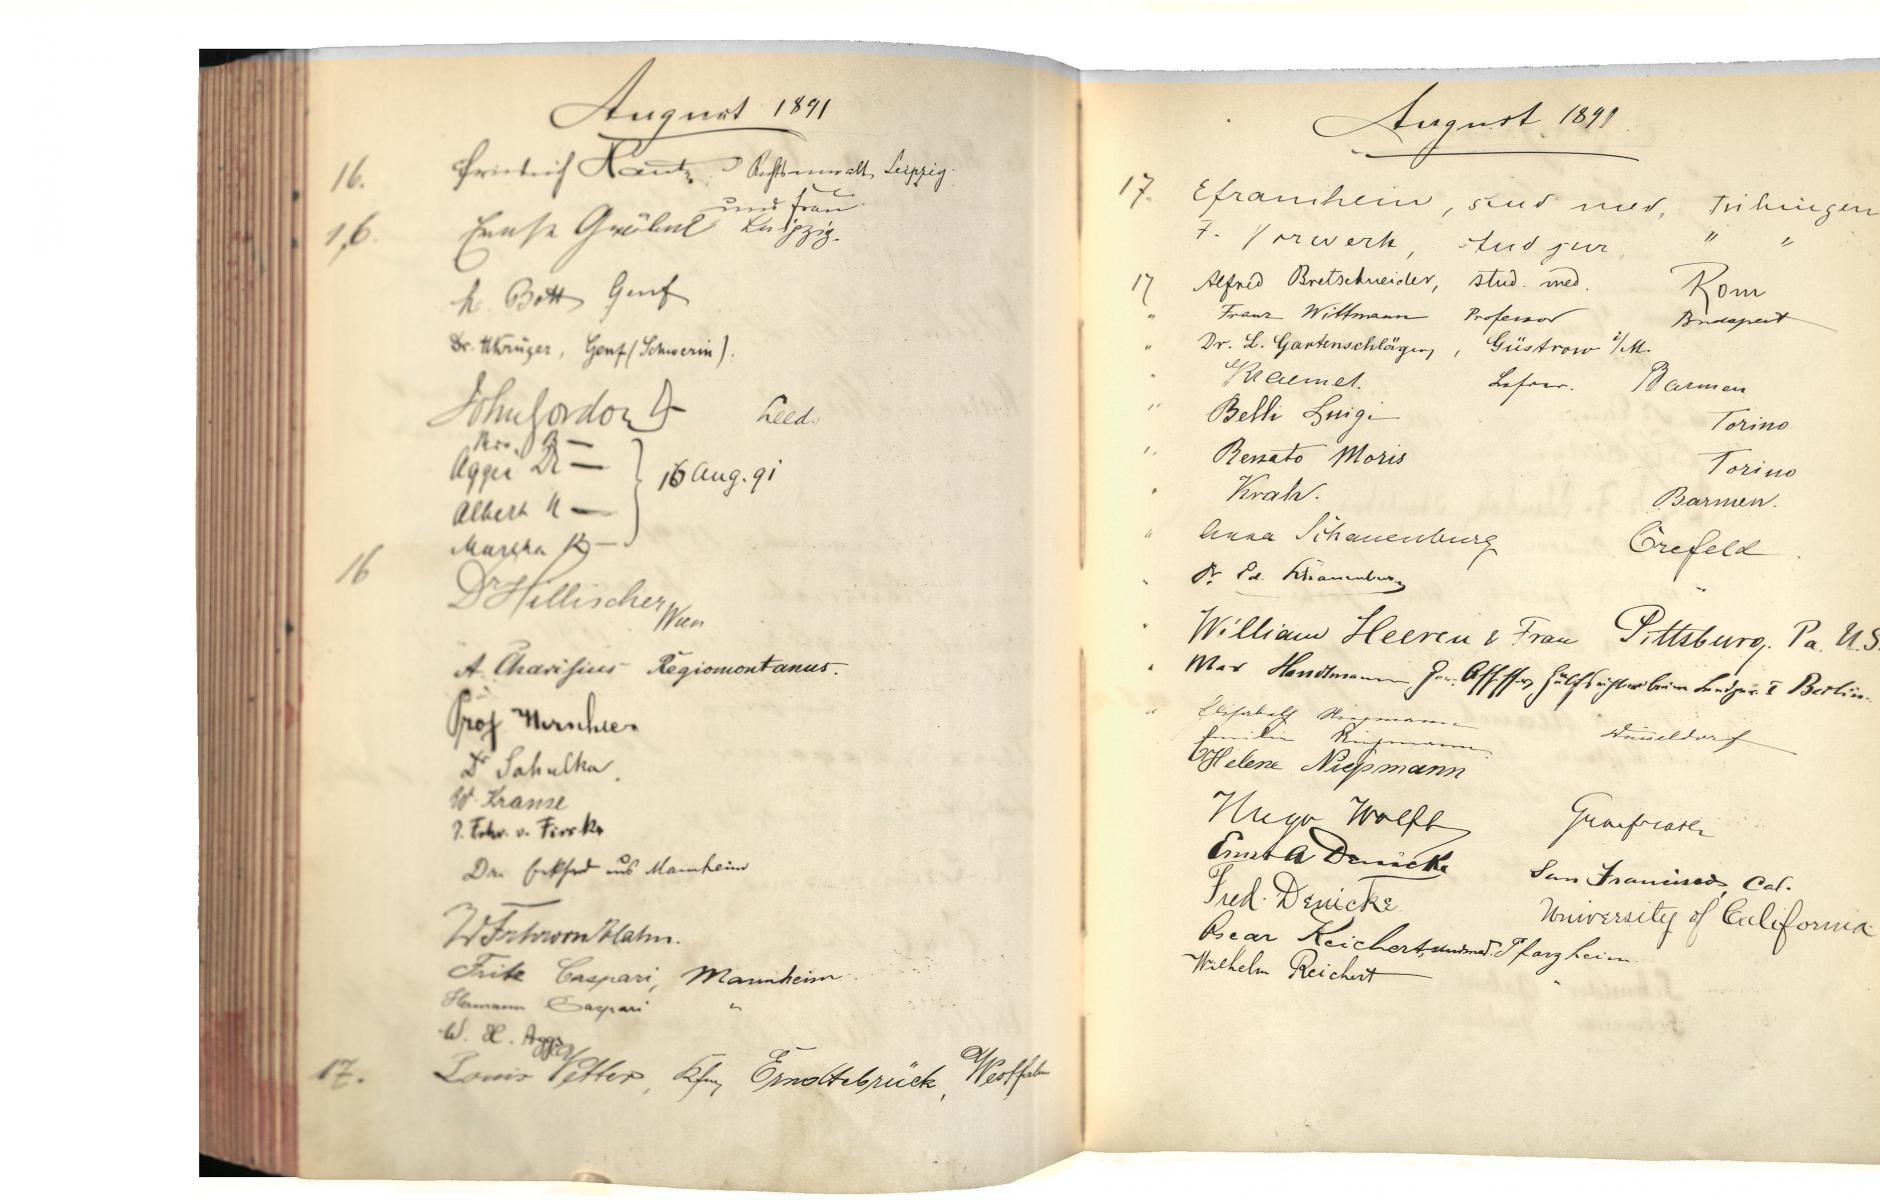 August 1891
16. Friedrich Rechtsanwalt, Leipzig.
und Frau
16 Ernst Gröbel Leipzig.
h. Bott Genf
Dr. WKrüger, Genf (Schwerin).
John Gordon Leeds
Mrs. B —
Aggie Dr —
Albert H — 16 Aug. 91
Martha B —
16 Dr Hillischer Wien
A. Charisius Regiomontanus.
Prof
Dr Sahulka
W. Krause
v. Fircks
Dr. aus Mannheim
W Frhr von Hahn.
Fritz Caspari, Mannheim
Hermann Caspari "
W. H. Aggie
17. Louis Vetter, Kfm, Erndtebrück, Westfalen
August 1891
17. Eframheim, stud med, Tübingen
F. Vorwerk, stud jur " "
17 Alfred Bretschneider, stud. med. Rom
" Franz Wittmann Professor Budapest
" Dr. L. Gartenschläger, Güstrow i/M.
" Kraemer. Barmen
" Belli Luigi Torino
" Renato Moris Torino
" Krah. Barmen.
" Anna Schauenburg Crefeld
" Dr. Ed. Schauenburg "
" William Heeren & Frau Pittsburg. Pa. U.S.
" Max Handtmann Ger. Assessor Hülfsrichter beim Landger. I Berlin.
" Elisabeth Niepmann Düsseldorf
Emilie Niepmann
Helene Niepmann
Hugo Wolff Graefrath
Ernst A Denicke San Francisco, Cal.
Fred. Denicke University of California
Oscar Reichert, stud med. Pforzheim
Wilhelm Reichert "